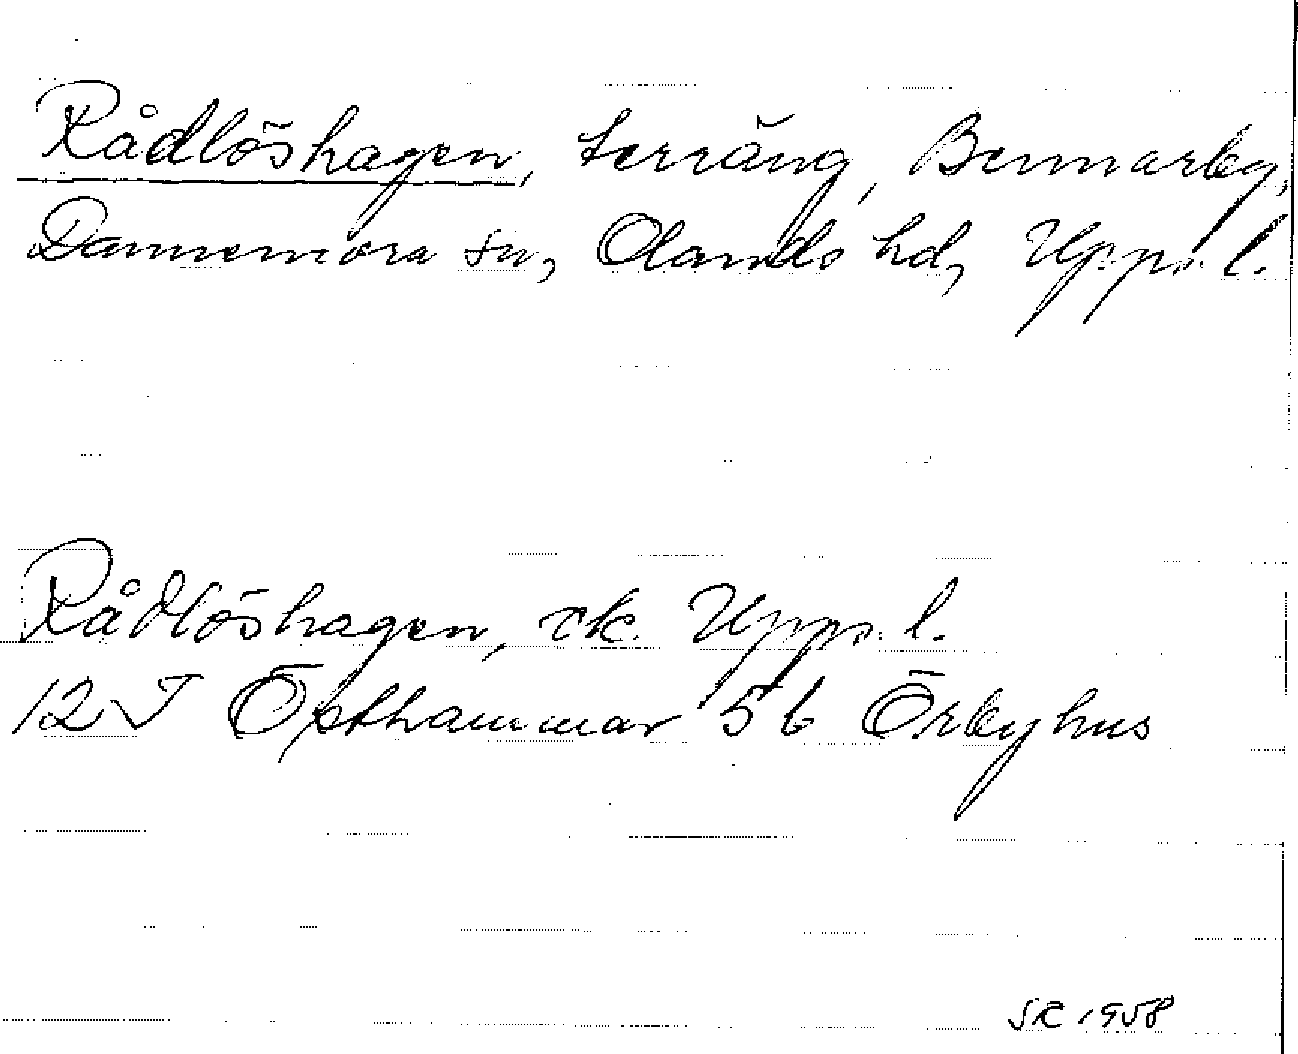 Rådlöshagen, terräng, Bennarby,
Dannemora sn, Olands hd, Upps. l.
Rådlöshagen, rk. Upps. l.
12 J Östhammar 5b Örbyhus
SR 1958